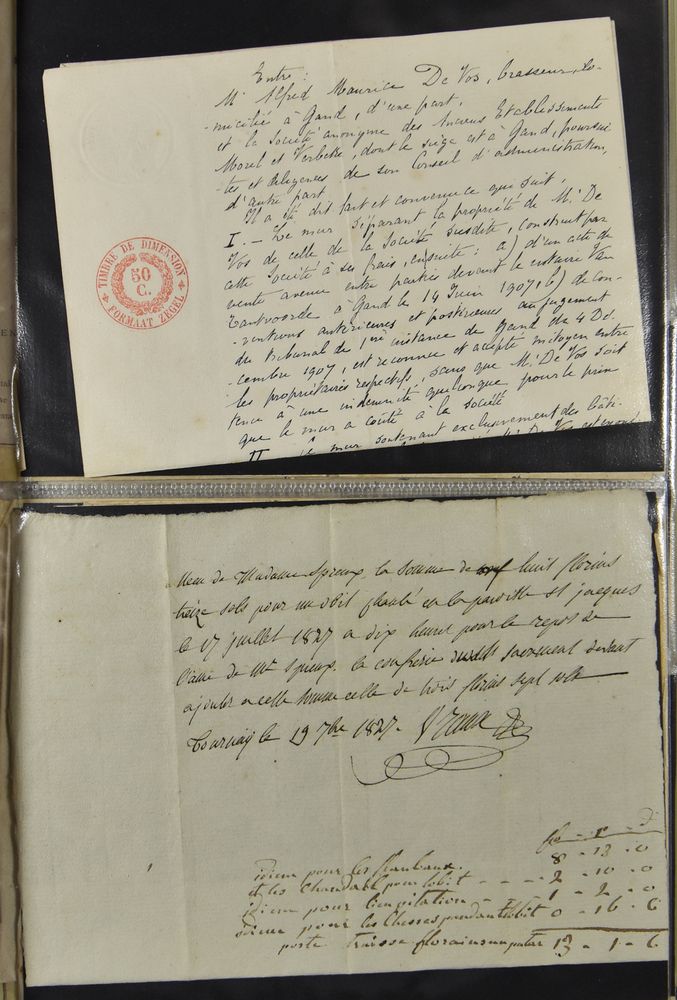 Entre :
Mr Alfred Maurice De Vos, brasseur, do-
-micilié à Gand, d'une part,
et la Société anonyme des Anciens Etablissements
Morel et Verbeke, dont le siège est à Gand, poursui
tes et diligences de son Conseil d'administration,
d'autre part
Il a été dit fait et convenu ce qui suit,
I. — Le mur séparant la propriété de Mr De
Vos de celle de la Société susdite, construit par
cette Société à ses frais, ensuite : a) d'un acte de
vente avenu entre parties devant le notaire Van
Zantvoorde à Gand le 14 Juin 1907, b) de con-
-ventions antérieures et postérieures au jugement
du tribunal de 1re instance de Gand du 4 Dé.
-cembre 1907, est reconnu et accepté mitoyen entre
les propriétaires respectifs, sans que Mr De Vos soit
tenu à une indemnité quelconque pour le prix
que le mur a coûté à la Société
II Le mur soutenant exclusivement des bâti-
TIMBRE DE DIMENSION
50
C.
FORMAAT ZEGEL
de Madame Spreux la somme de huit florins
treize sols pour un obit chanté en la paroisse st jacques
le 17 juillet 1827 a dix heure pour le repos de
l'ame de Mr Spreux. la confrérie du st sacrement devant
ajouter a cette somme celle de trois florins sept sols
Tournay le 19 7bre 1827.
8 - 13 - 0
idem pour les flambaux
et les chandelle pour lobit - - - 2 - 10 - 0
idem pour - - 1 - 2 - 0
idem pour les Chesses pendant lobit 0 - 16 - 6
13 - 1 - 6